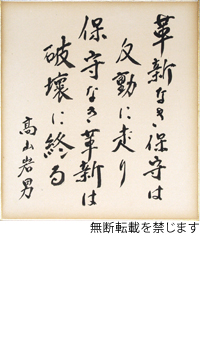 革新なき保守は
反動に走り
保守なき革新は
破壊に終る
高山岩男
無断転載を禁じます